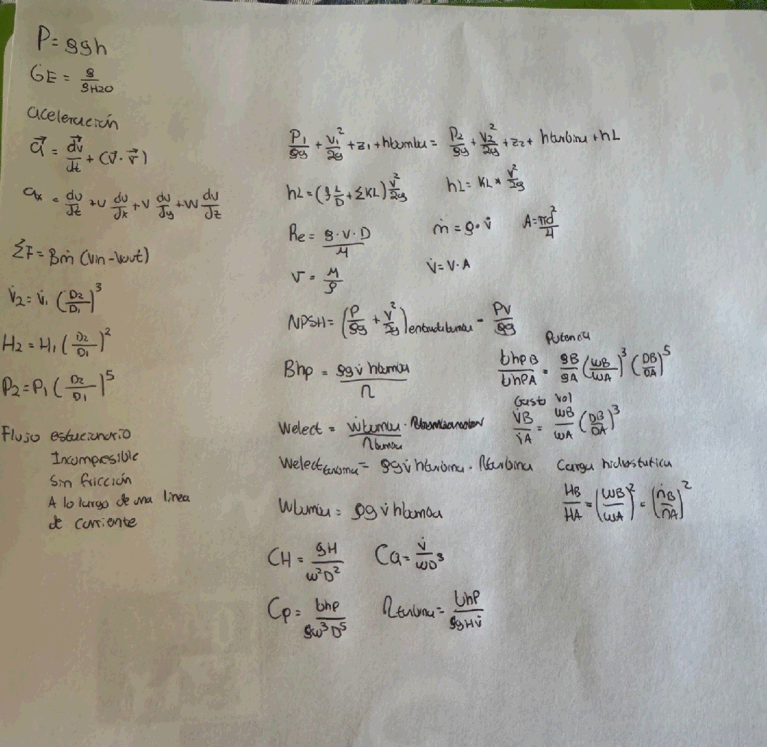 P = ρgh
GE = ρ/ρH2O
aceleración
a⃗ = dv⃗/dt + (V⃗·v⃗)
ax = du/dt + u du/dx + v du/dy + w du/dz
ΣF = Bṁ (Vin - Vout)
V̇2 = V̇1 (D2/D1)^3
H2 = H1 (D2/D1)^2
P2 = P1 (D2/D1)^5
Flujo estacionario
Incompresible
Sin fricción
A lo largo de una linea
de corriente
P1/ρg + V1^2/2g + z1 + hbomba = P2/ρg + V2^2/2g + z2 + hturbina + hL
hL = (f L/D + ΣKL) V^2/2g hL = KL * V^2/2g
Re = ρ·V·D/μ ṁ = ρ·v̇ A = πd^2/4
ν = μ/ρ V̇ = V·A
NPSH = (P/ρg + V^2/2g)entrada bomba - Pv/ρg
Potencia
Bhp = ρgv̇ hbomba/η bhpB/bhpA = ρB/ρA (ωB/ωA)^3 (DB/DA)^5
Gasto Vol
Welect = ẇbomba · ηtransmision/ηbomba V̇B/V̇A = ωB/ωA (DB/DA)^3
Welectturbina = ρgv̇ hturbina · ηturbina Carga hidrostatica
Wbomba = ρgv̇ hbomba HB/HA = (ωB/ωA)^2 = (ṅB/ṅA)^2
CH = gH/ω^2D^2 CQ = V̇/ωD^3
Cp = bhp/ρω^3D^5 ηturbina = bhp/ρgHv̇